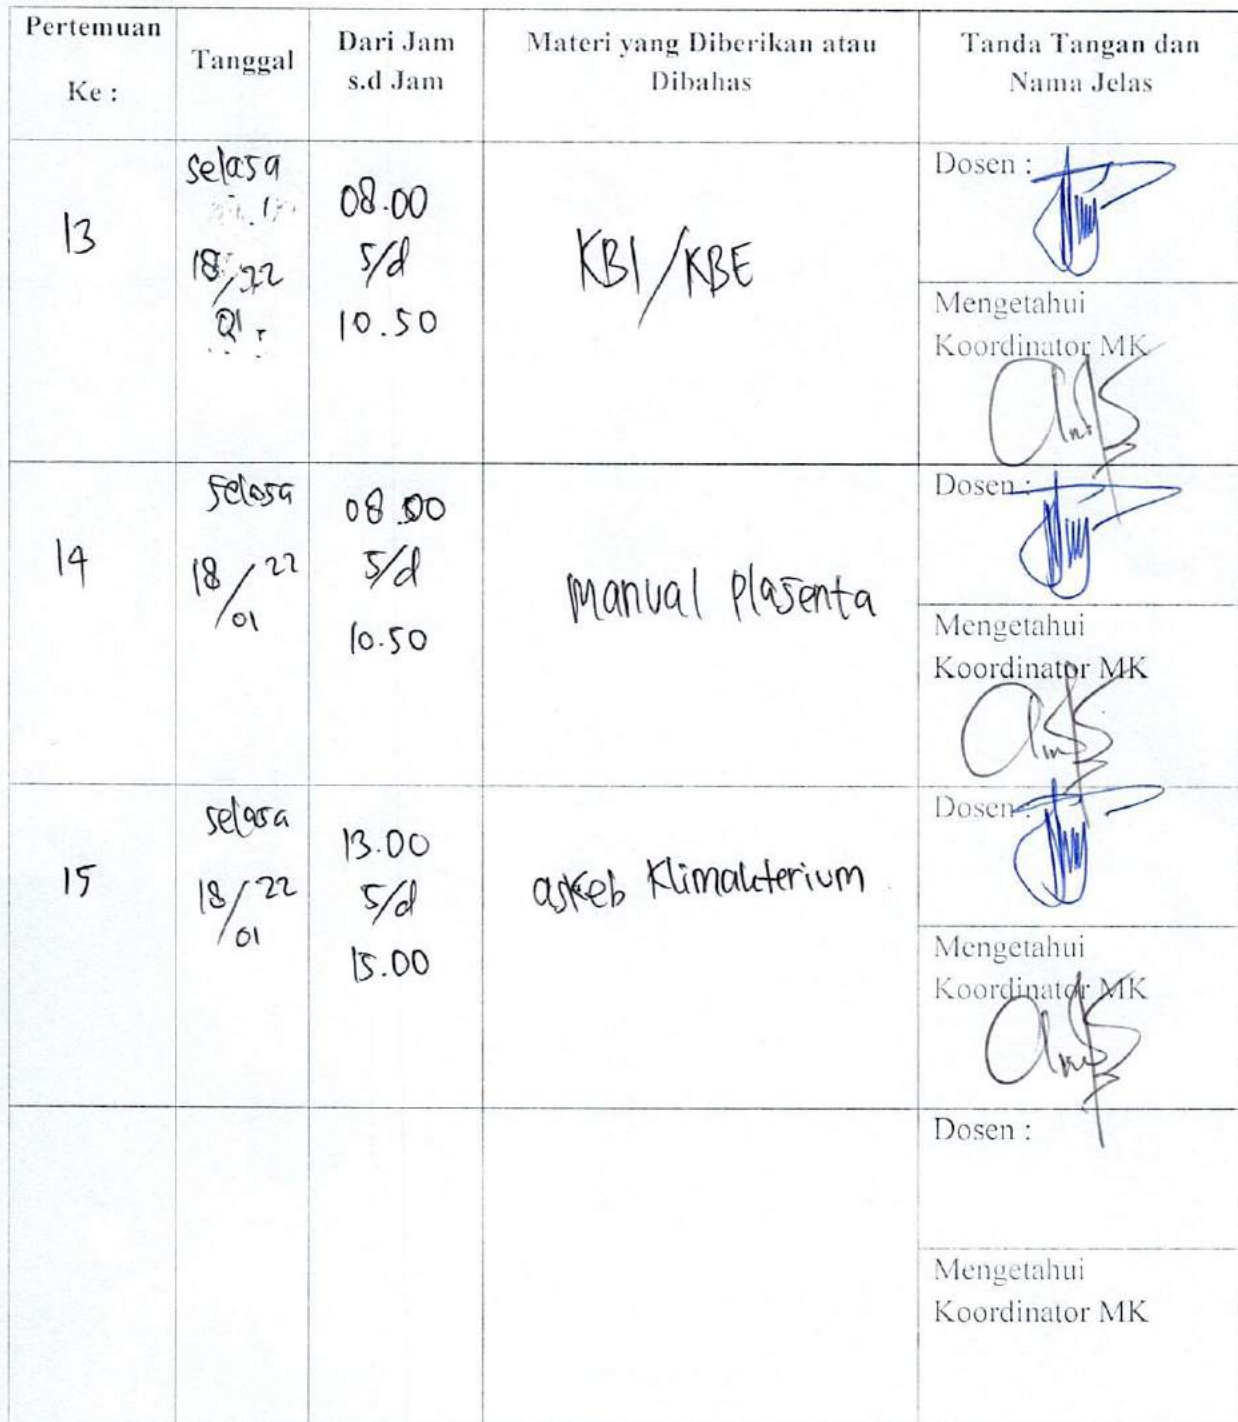 Pertemuan
Ke :
Tanggal
Dari Jam
s.d Jam
Materi yang Diberikan atau
Dibahas
Tanda Tangan dan
Nama Jelas
13
selasa
18/22
01
08.00
s/d
10.50
KBI/KBE
Dosen :
Mengetahui
Koordinator MK
14
selasa
18/22
01
08.00
s/d
10.50
manual plasenta
Dosen :
Mengetahui
Koordinator MK
15
selasa
18/22
01
13.00
s/d
15.00
askeb Klimakterium
Dosen :
Mengetahui
Koordinator MK
Dosen :
Mengetahui
Koordinator MK